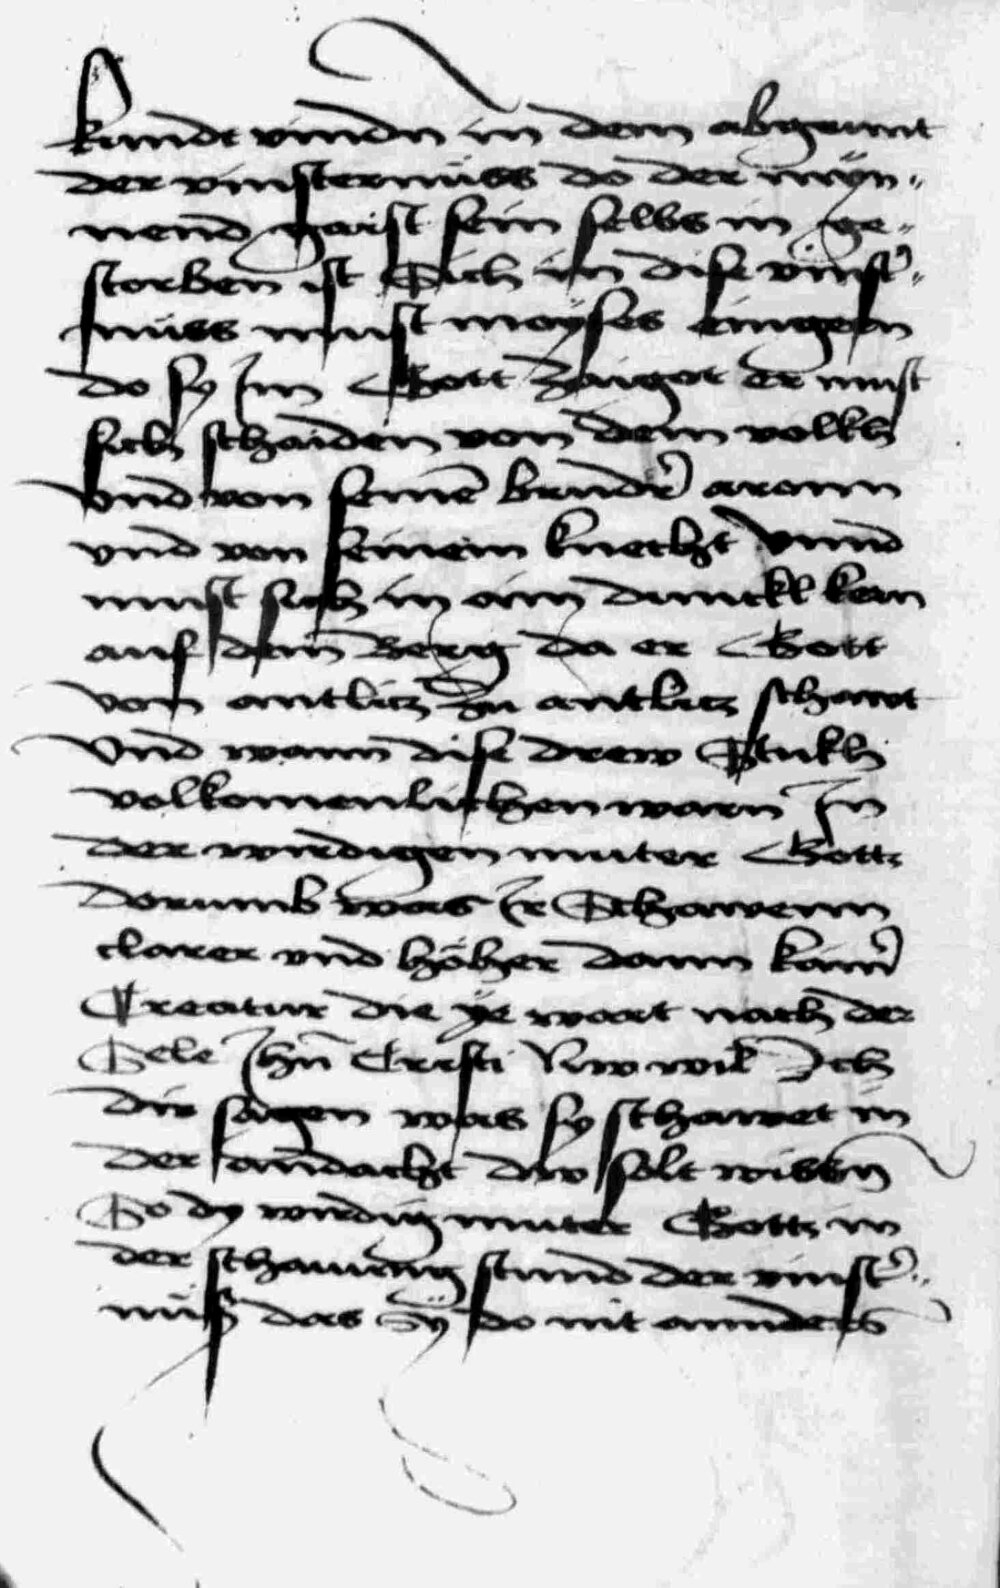 kundt vindn in dem abgrunt
der vinsternüss do der mÿn-
nend gaist sein selbs in ge-
storben ist Sich in dise vinst̄-
nuss must moÿses eingen
do sy Im Gott zaigat er must
sich schaiden von dem volkh
vnd von seinē brudr̄ aronn
vnd von seinem knecht vnnd
must sich in ain dunckl kern
auf dem Berg da er Gott
von antlitz zu antlitz schawt
Vnd wann dise drew Stukh
volkomenlichen warn In
der wirdigen muter Gotts
dorumb was Ir Schawenn
clarer vnd höher dann kain̄
Creatur die ÿe wart nach der
Sele Ihū Cristi Nw wil Ich
dir sagen was sy schawet in
der andacht dw solt wissn̄
So dy wirdig muter Gotts in
der schauung stund der vinst̄-
nüß das Sÿ do nit annders